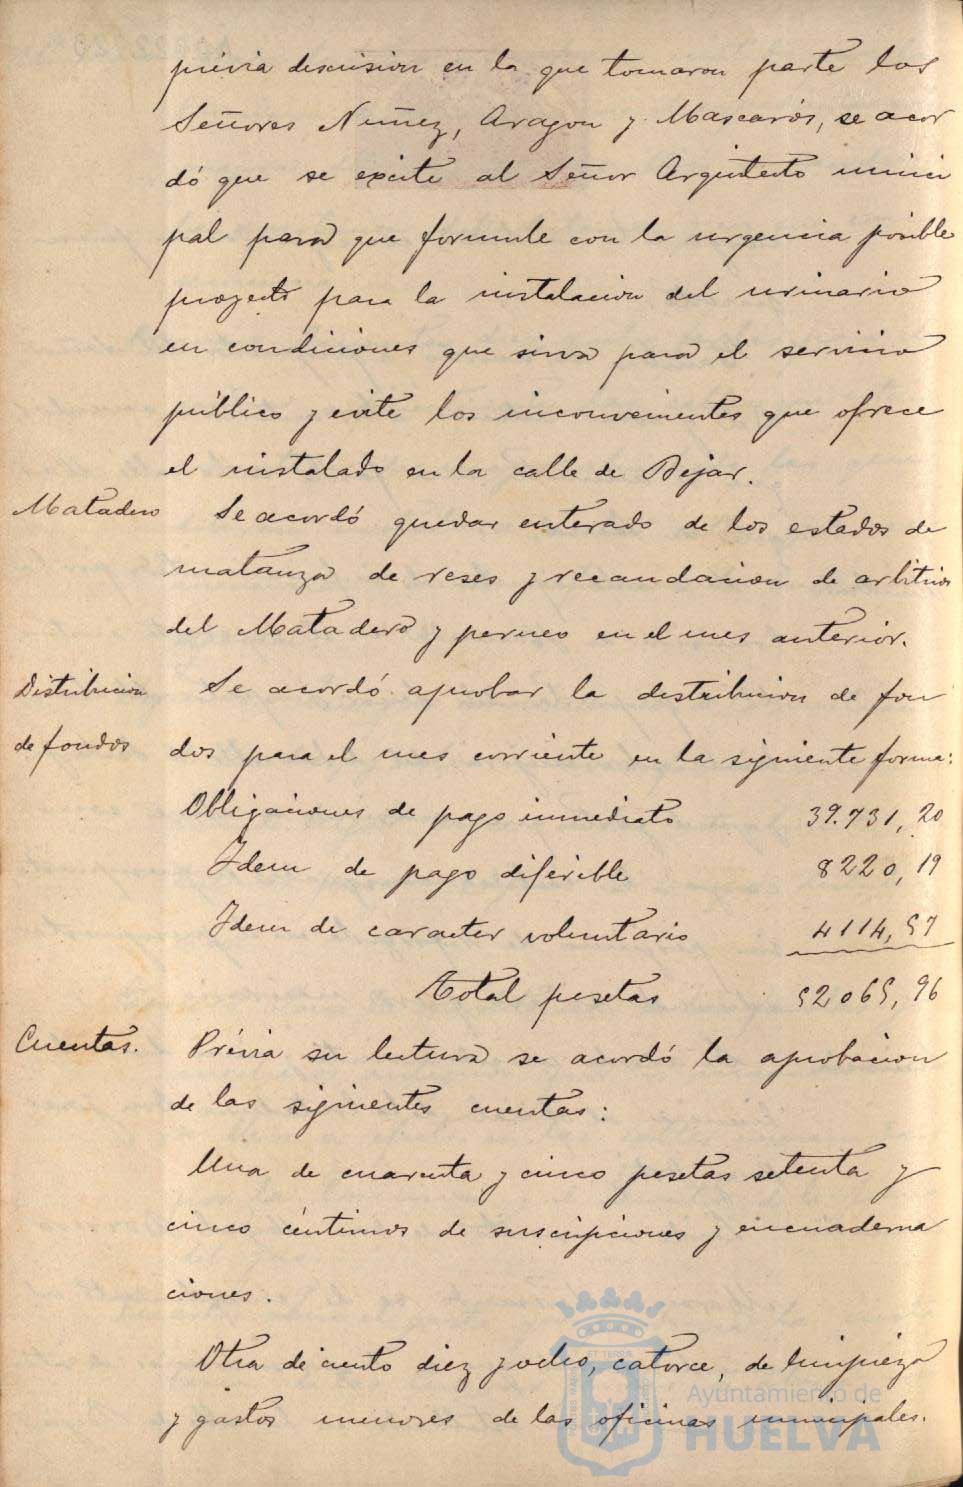 prévia discusion en la que tomaron parte los
Señores Nuñez, Aragon y Mascarós, se acor
dó que se excite al Señor Arquitecto munici
pal para que formule con la urgencia posible
proyecto para la instalacion del urinario
en condiciones que sirva para el servicio
público y evite los inconvenientes que ofrece
el instalado en la calle de Bejar.
Matadero Se acordó quedar enterado de los estados de
matanza de reses y recaudacion de arbitrios
del Matadero y perneo en el mes anterior.
Distribucion Se acordó aprobar la distribucion de fon
de fondos dos para el mes corriente en la siguiente forma:
Obligaciones de pago inmediato 39.731,20
Idem de pago diferible 8220,19
Idem de caracter voluntario 4114,57
Total pesetas 52065,96
Cuentas. Prévia su lectura se acordó la aprobacion
de las siguientes cuentas:
Una de cuarenta y cinco pesetas setenta y
cinco céntimos de suscripciones y encuaderna
ciones.
Otra de ciento diez y ocho, catorce, de limpieza
y gastos menores de las oficinas municipales.
Ayuntamiento de
HUELVA